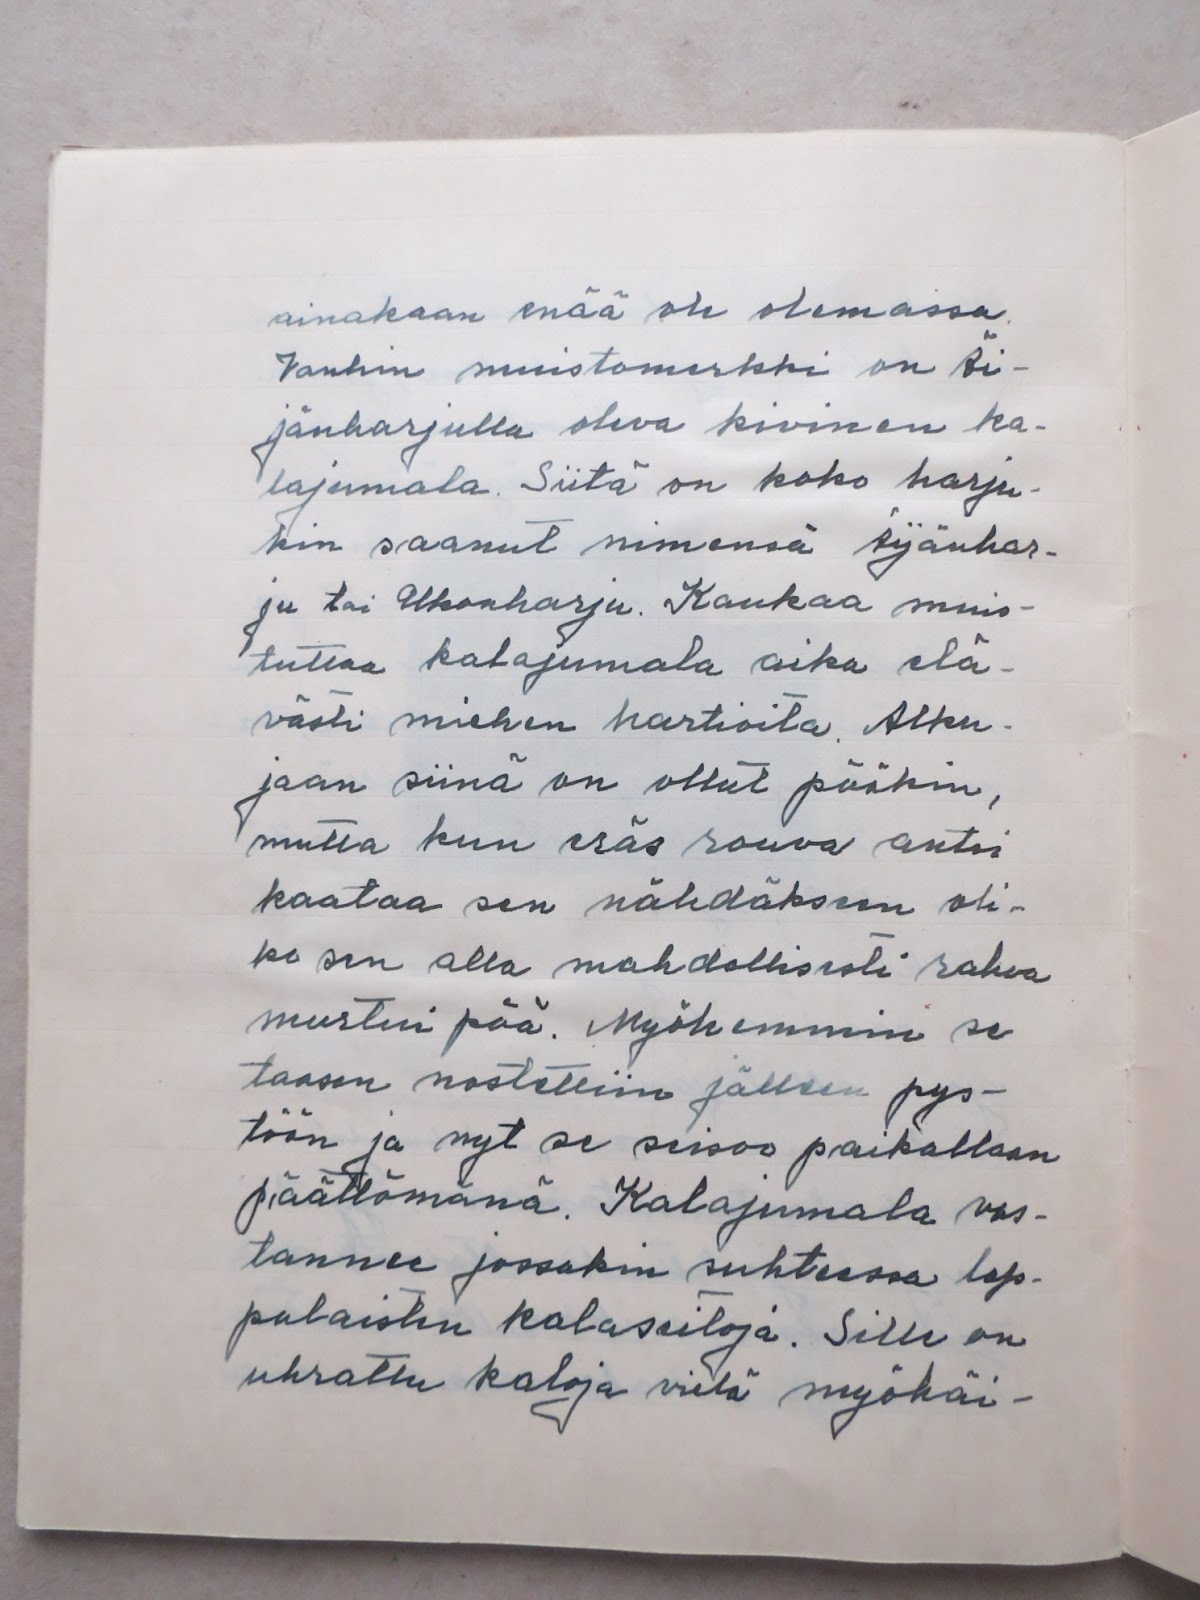 ainakaan enää ole olemassa.
Vanhin muistomerkki on Äi-
jänharjulla oleva kivinen ka-
lajumala. Siitä on koko harju-
kin saanut nimensä Äijänhar-
ju tai Ukonharju. Kaukaa muis-
tuttaa kalajumala aika elä-
västi miehen hartioita. Alku-
jaan siinä on ollut pääkin,
mutta kun eräs rouva antoi
kaataa sen nähdäkseen oli-
ko sen alla mahdollisesti rahaa
murtui pää. Myöhemmin se
taasen nostettiin jälleen pys-
töön ja nyt se seisoo paikallaan
päättömänä. Kalajumala vas-
tannee jossakin suhteessa lap-
palaisten kalaseitoja. Sille on
uhrattu kaloja vielä myöhäi-